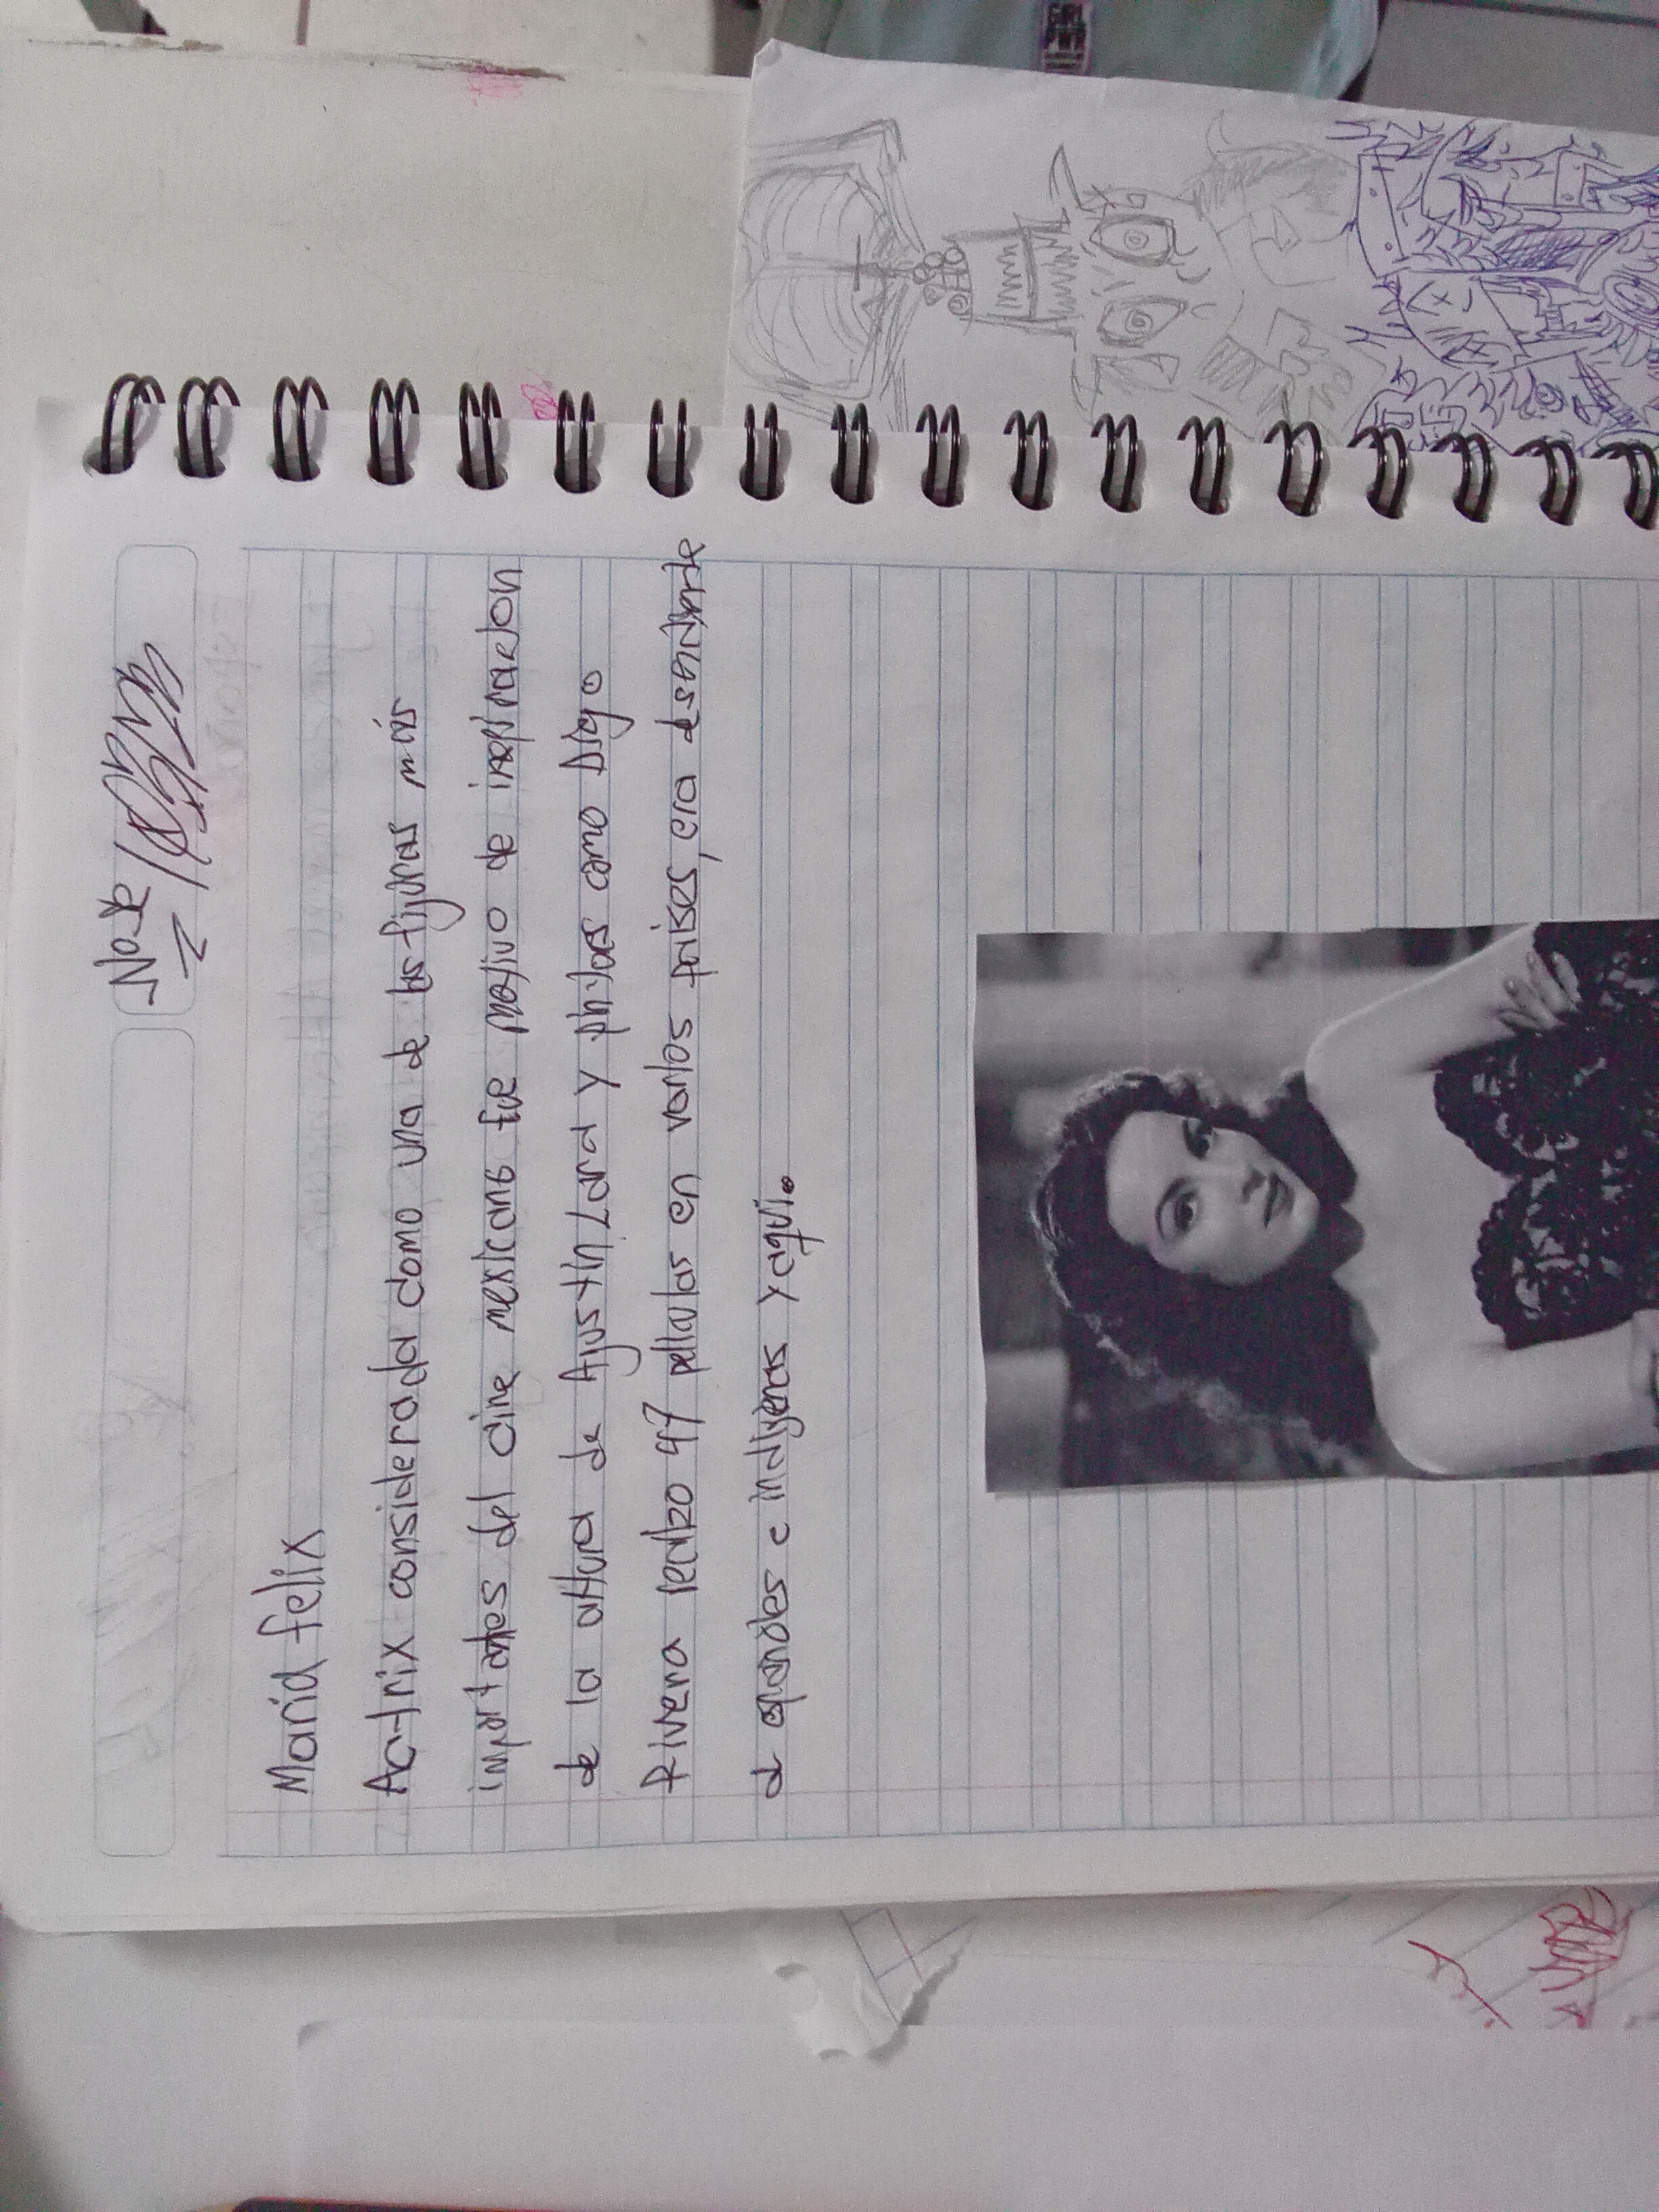 Maria felix
Actrix considerada como una de las figuras más
importantes del cine mexicano fue motivo de inspiracion
de la altura de Agustin Lara y pintores como Diego
Rivera realizo 47 peliculas en varios paises, era desendiente
d españoles e indigenas yaqui.
GIRL
PWR